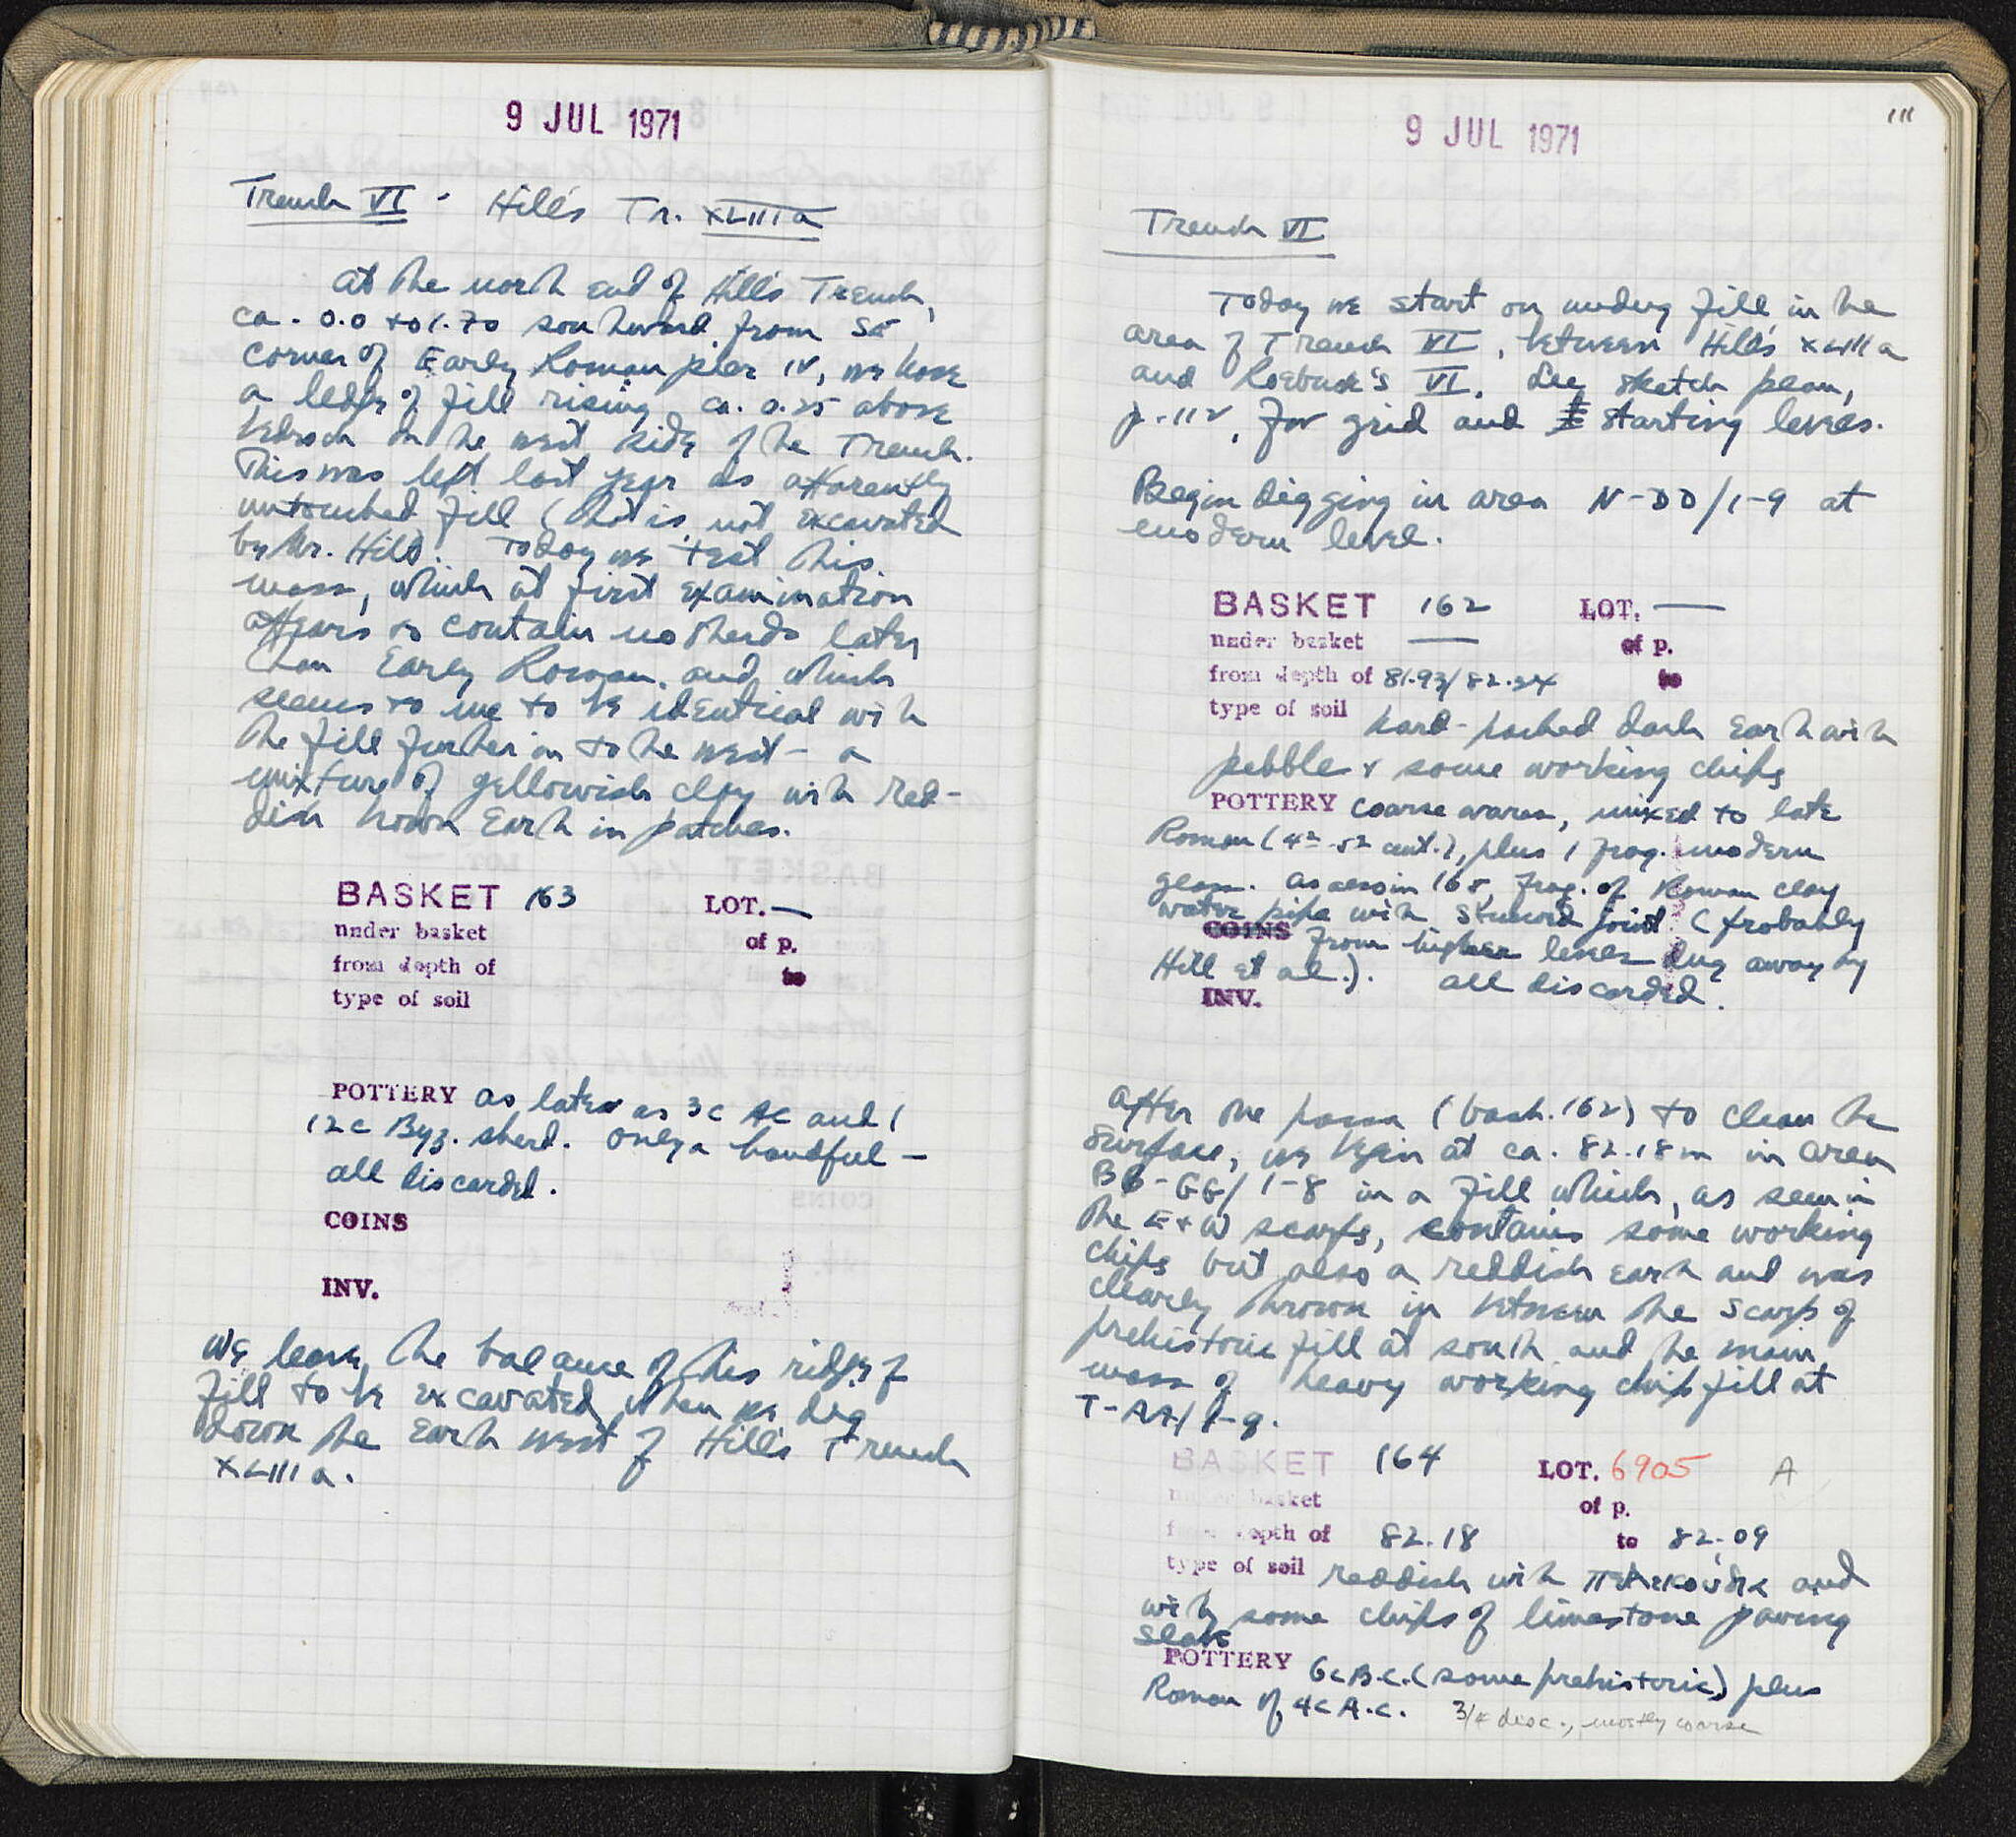 9 JUL 1971
Trench VI - Hill's Tr. XLIIIa
At the north end of Hill's Trench,
ca. 0.0 to 1.70 southward from SE
corner of Early Roman pier IV, we have
a ledge of fill rising ca. 0.25 above
bedrock on the west side of the Trench.
This was left last year as apparently
untouched fill (that is, not excavated
by Mr. Hill). Today we test this
mass, which at first examination
appears to contain no sherds later
than Early Roman, and which
seems to me to be identical with
the fill further in to the west - a
mixture of yellowish clay with red-
dish brown earth in patches.
BASKET 163 LOT. —
under basket of p.
from depth of to
type of soil
POTTERY as late as 3c AC and 1
12c Byz. sherd. Only a handful -
all discarded.
COINS
INV.
We leave the balance of this ridge of
fill to be excavated when we dig
down the earth west of Hill's Trench
XLIIIa.
111
9 JUL 1971
Trench VI
Today we start on undug fill in the
area of Trench VI, between Hill's XLIIIa
and Roebuck's VI. See sketch plan,
p. 112, for grid and starting levels.
Begin digging in area N-DD/1-9 at
modern level.
BASKET 162 LOT. —
under basket — of p.
from depth of 81.93/82.24 to
type of soil hard-packed dark earth with
pebble + some working chips
POTTERY coarse wares, mixed to late
Roman (4th-5th cent.), plus 1 frag. modern
glass. As also in 165, frag. of Roman clay
water pipe with stuccoed joint (probably
COINS from higher levels dug away by
Hill et al.). All discarded.
INV.
After one passa (bask. 162) to clean the
surface, we begin at ca. 82.18m in area
BB-GG/1-8 in a fill which, as seen in
the E+W scarps, contains some working
chips but also a reddish earth and was
clearly thrown in between the scarp of
prehistoric fill at south and the main
mass of heavy working chip fill at
T-AA/1-9.
BASKET 164 LOT. 6905 A
under basket of p.
from depth of 82.18 to 82.09
type of soil reddish with and
with some chips of limestone paving
slabs
POTTERY 6c B.C. (some prehistoric) plus
Roman of 4c A.C. 3/4 disc., mostly coarse